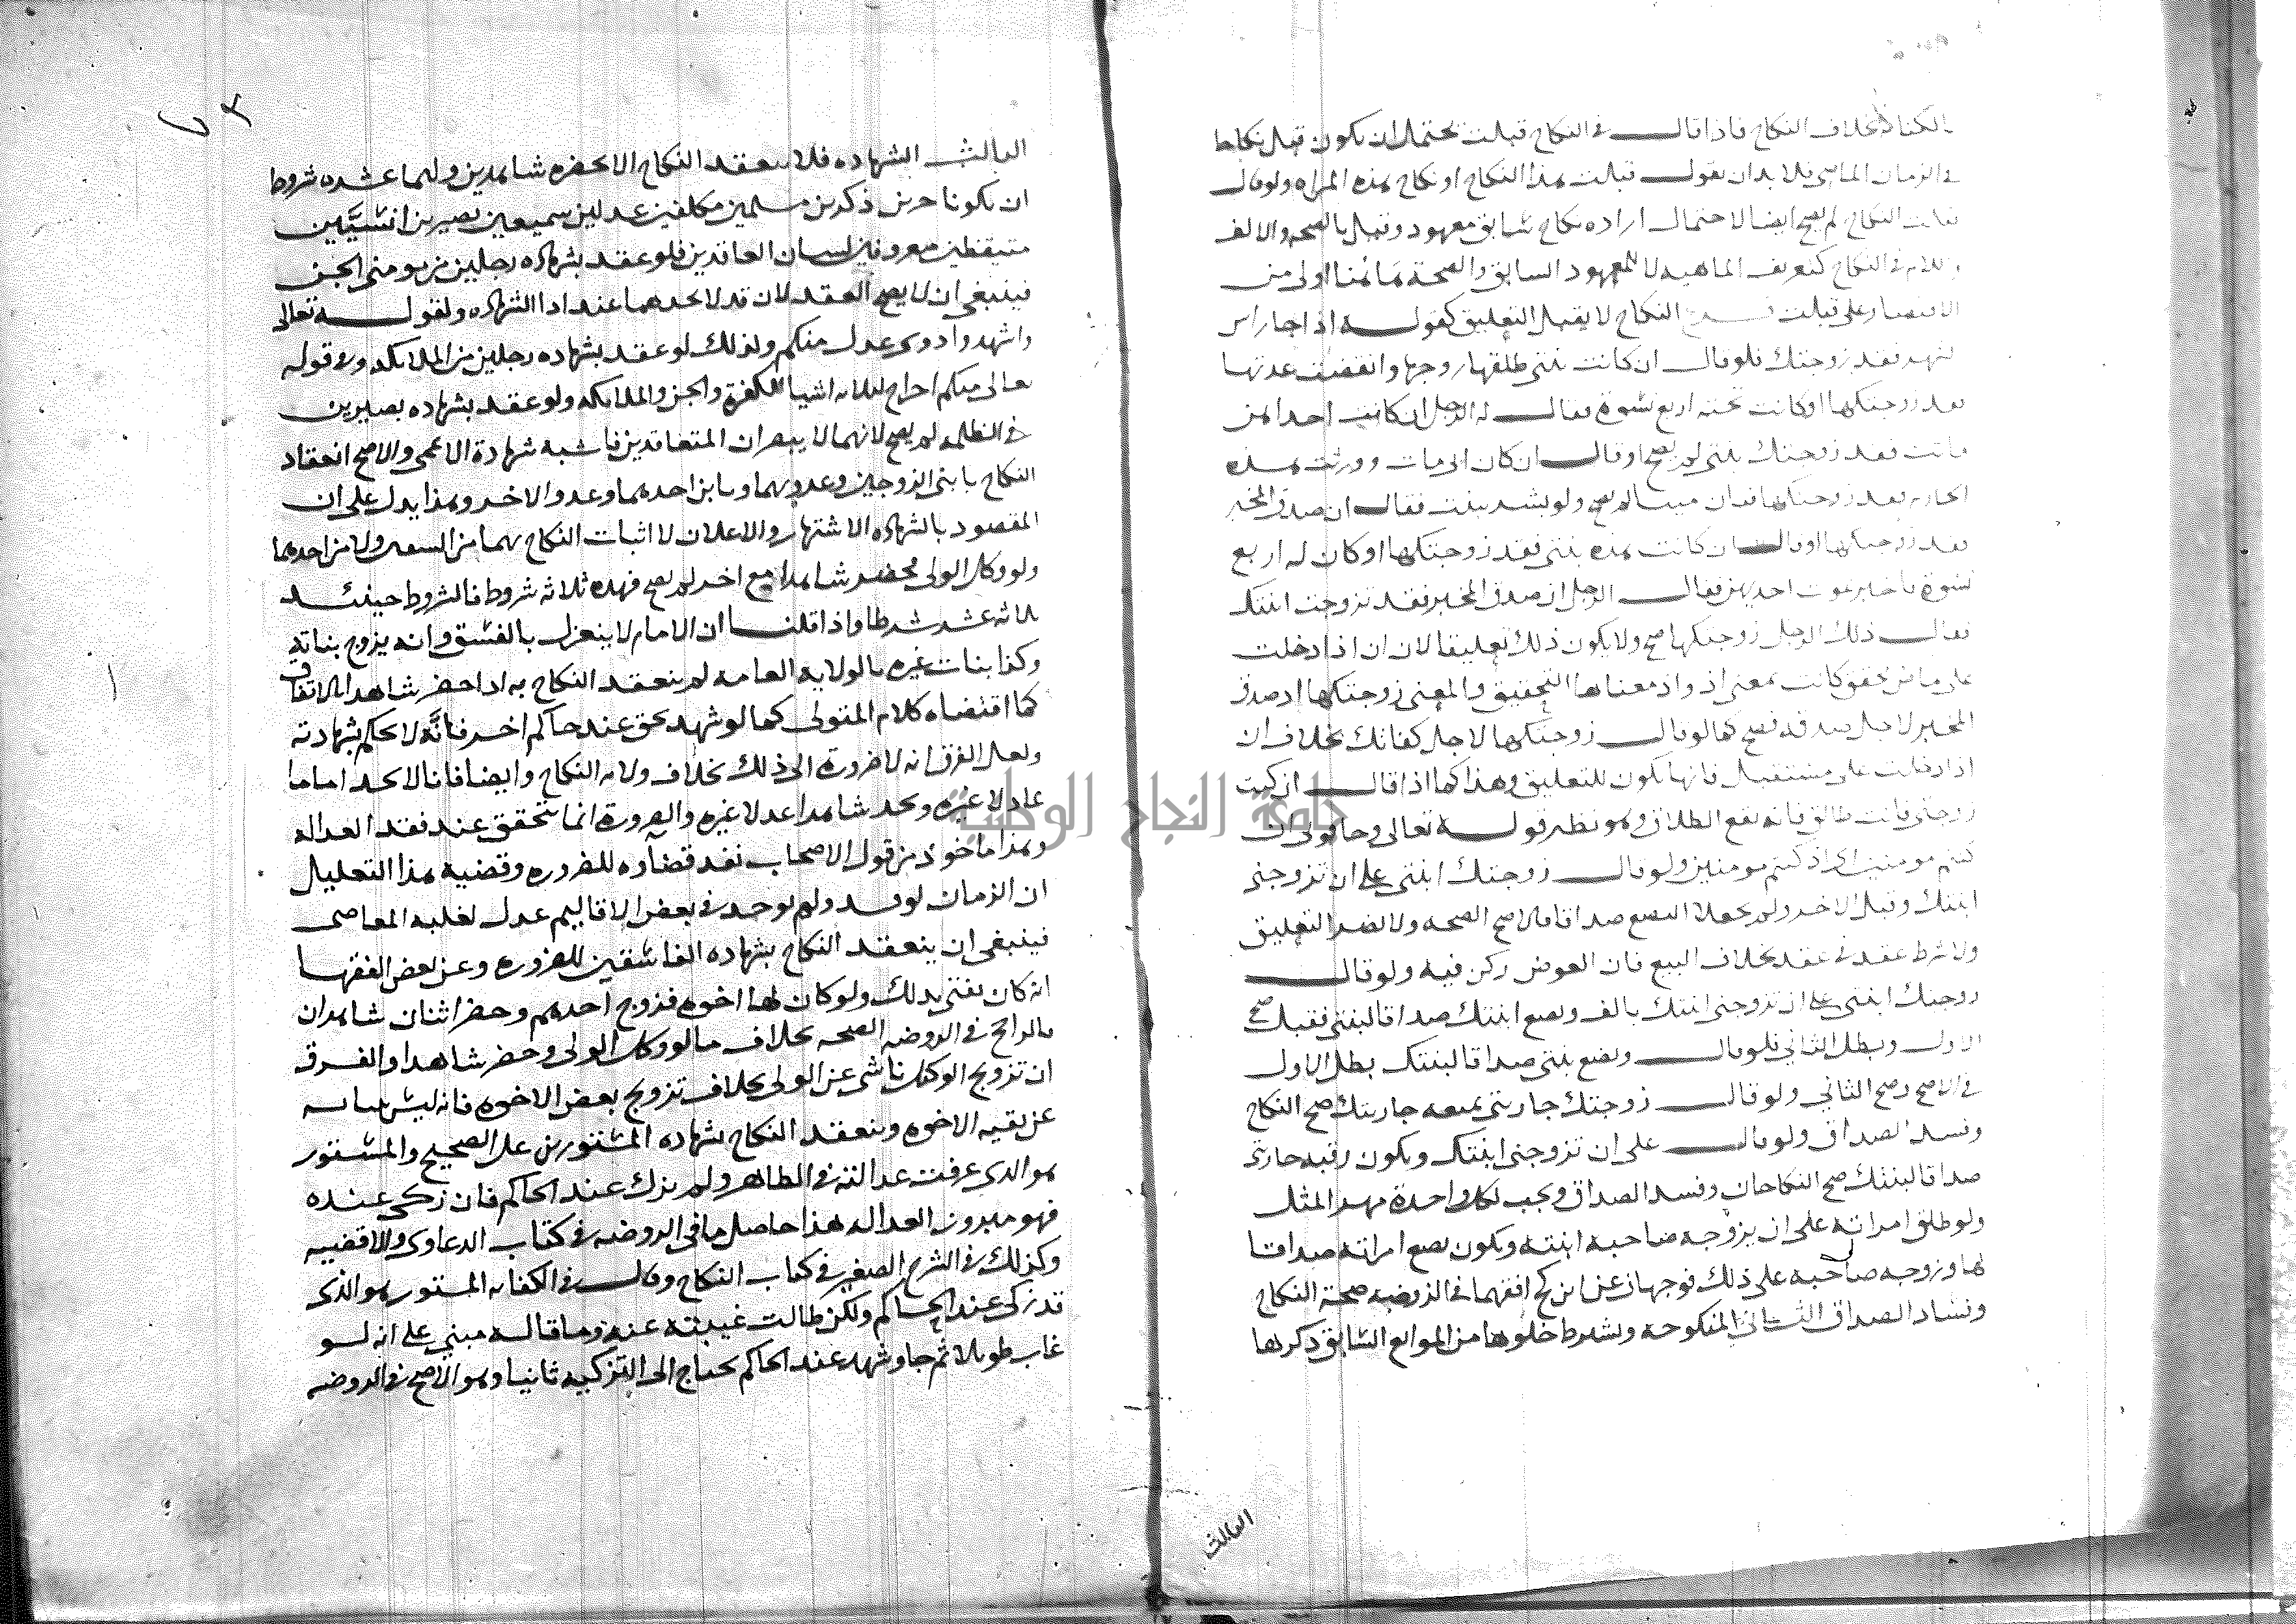 الكناية بخلاف النكاح فاذا قال في النكاح قبلت يحتمل ان يكون قبل نكاحا
في الزمان الماضي فلا بد ان يقول قبلت هذا النكاح او نكاح هذه المراه ولو قال
قبلت النكاح لم يصح ايضا لاحتمال اراده نكاح سابق معهود وقيل بالصحه والالف
واللام في النكاح لتعريف الماهيه لا للمعهود السابق والصحة هاهنا اولى من
الاقتصار على قبلت النكاح لا يقبل التعليق كقوله اذا جا راس
الشهر فقد زوجتك فلو قال ان كانت بنتي طلقها زوجها وانقضت عدتها
فقد زوجتكها او كانت تحته اربع نسوة فقال له الرجل ان كانت احداهن
ماتت فقد زوجتك بنتي لم يصح او قال ان كان ابي مات وورثت هذه
الجاريه فقد زوجتكها فبان ميتا لم يصح ولو بشر ببنت فقال ان صدق المخبر
فقد زوجتكها او قال ان كانت هذه بنتي فقد زوجتكها او كان له اربع
نسوة فاخبر بموت احديهن فقال الرجل ان صدق المخبر فقد تزوجت ابنتك
فقال ذلك الرجل زوجتكها صح ولا يكون ذلك تعليقا لان ان اذا دخلت
على ماض محقق كانت بمعنى اذ واذ معناها التحقيق والمعنى زوجتكها اذ صدق
المخبر لاجل صدقه فصح كما لو قال زوجتكها لاجل كفاتك بخلاف ان
اذا دخلت على مستقبل فانها تكون للتعليق وهذا كما اذا قال ان كنت
زوجتي فانت طالق فانه يقع الطلاق وهو نظير قوله تعالى وخافوني ان
كنتم مومنين اي اذ كنتم مومنين ولو قال زوجتك ابنتي على ان تزوجني
ابنتك وقبل الاخر ولم يجعلا البضع صداقا فالاصح الصحه ولا يضر التعليق
ولا شرط عقد في عقد بخلاف البيع فان العوض ركن فيه ولو قال
زوجتك ابنتي على ان تزوجني ابنتك بالف وبضع ابنتك صداقا لبنتي فقبل صح
الاول وبطل الثاني فلو قال وبضع بنتي صداقا لبنتك بطل الاول
في الاصح وصح الثاني ولو قال زوجتك جاريتي بمتعه جاريتك صح النكاح
وفسد الصداق ولو قال على ان تزوجني ابنتك وتكون رقبه جاريتي
صداقا لبنتك صح النكاحان وفسد الصداق ويجب لكل واحدة مهر المثل
ولو طلق امراته على ان يزوجه صاحبه ابنته ويكون بضع امراته صداقا
لها وزوجه صاحبه على ذلك فوجهان عن ابن كج افقههما في الروضه صحة النكاح
وفساد الصداق الثاني المنكوحه ويشترط خلوها من الموانع السابق ذكرها
الثالث
٧٣
الثالث الشهاده فلا ينعقد النكاح الا بحضره شاهدين ولهما عشره شروط
ان يكونا حرين ذكرين مسلمين مكلفين عدلين سميعين بصيرين انسيين
متيقظين معروفين لسان العاقدين فلو عقد بشهاده رجلين من مومني الجن
فينبغي ان لا يصح العقد لان قد لا نجدهما عند ادا الشهاده ولقوله تعالى
واشهدوا ذوى عدل منكم ولذلك لو عقد بشهاده رجلين من الملايكه وفي قوله
تعالى منكم اخراج لثلاثه اشيا الكفرة والجن والملايكه ولو عقد بشهاده بصيرين
في الظلمه لم يصح لانهما لا يبصران المتعاقدين فاشبه شهادة الاعمى والاصح انعقاد
النكاح بابني الزوجين وعدويهما وبابن احدهما وعدو الاخر وهذا يدل على ان
المقصود بالشهاده الاشتهار والاعلان لا اثبات النكاح بهما من السعي ولا من احدهما
ولو وكل الولي فحضر شاهدا مع اخر لم يصح فهذه ثلاثه شروط فالشروط حينئد
ثلاثه عشر شرطا واذا قلنا ان الامام لا ينعزل بالفسق وانه يزوج بناته
وكذا بنات غيره بالولايه العامه لم ينعقد النكاح به اذا حضر شاهدا بالاتفاق
كما اقتضاه كلام المتولي كما لو شهد بحق عند حاكم اخر فانه لا يحكم بشهادته
ولعل الفرق انه لا ضرورة الى ذلك بخلاف ولايه النكاح وايضا فانا لا نجد اماما
عادلا غيره ونجد شاهدا عدلا غيره والضرورة انما تتحقق عند فقد العداله
وهذا ماخوذ من قول الاصحاب نفذ قضاوه للضروره وقضيه هذا التعليل
ان الزمان لو فسد ولم يوجد في بعض الاقاليم عدل لغلبه المعاصي
فينبغي ان ينعقد النكاح بشهاده الفاسقين للضروره وعن بعض الفقها
انه كان يفتي بذلك ولو كان لها اخوه فزوج احدهم وحضر اثنان شاهدان
فالراجح في الروضه الصحه بخلاف ما لو وكل الولي وحضر شاهدا والفرق
ان تزويج الوكيل ناشى عن الولي بخلاف تزويج بعض الاخوه فانه ليس نيابه
عن بقيه الاخوه وينعقد النكاح بشهاده المستورين على الصحيح والمستور
هو الذي عرفت عدالته في الظاهر ولم يزك عند الحاكم فان زكى عنده
فهو مبرور العداله هذا حاصل ما في الروضه في كتاب الدعاوى والاقضيه
وكذلك في الشرح الصغير في كتاب النكاح وقال في الكفايه المستور هو الذي
قد زكى عند الحاكم ولكن طالت غيبته عنه وما قاله مبني على انه لو
غاب طويلا ثم جا وشهد عند الحاكم يحتاج الى التزكيه ثانيا وهو الاصح في الروضه
جامعة النجاح الوطنية